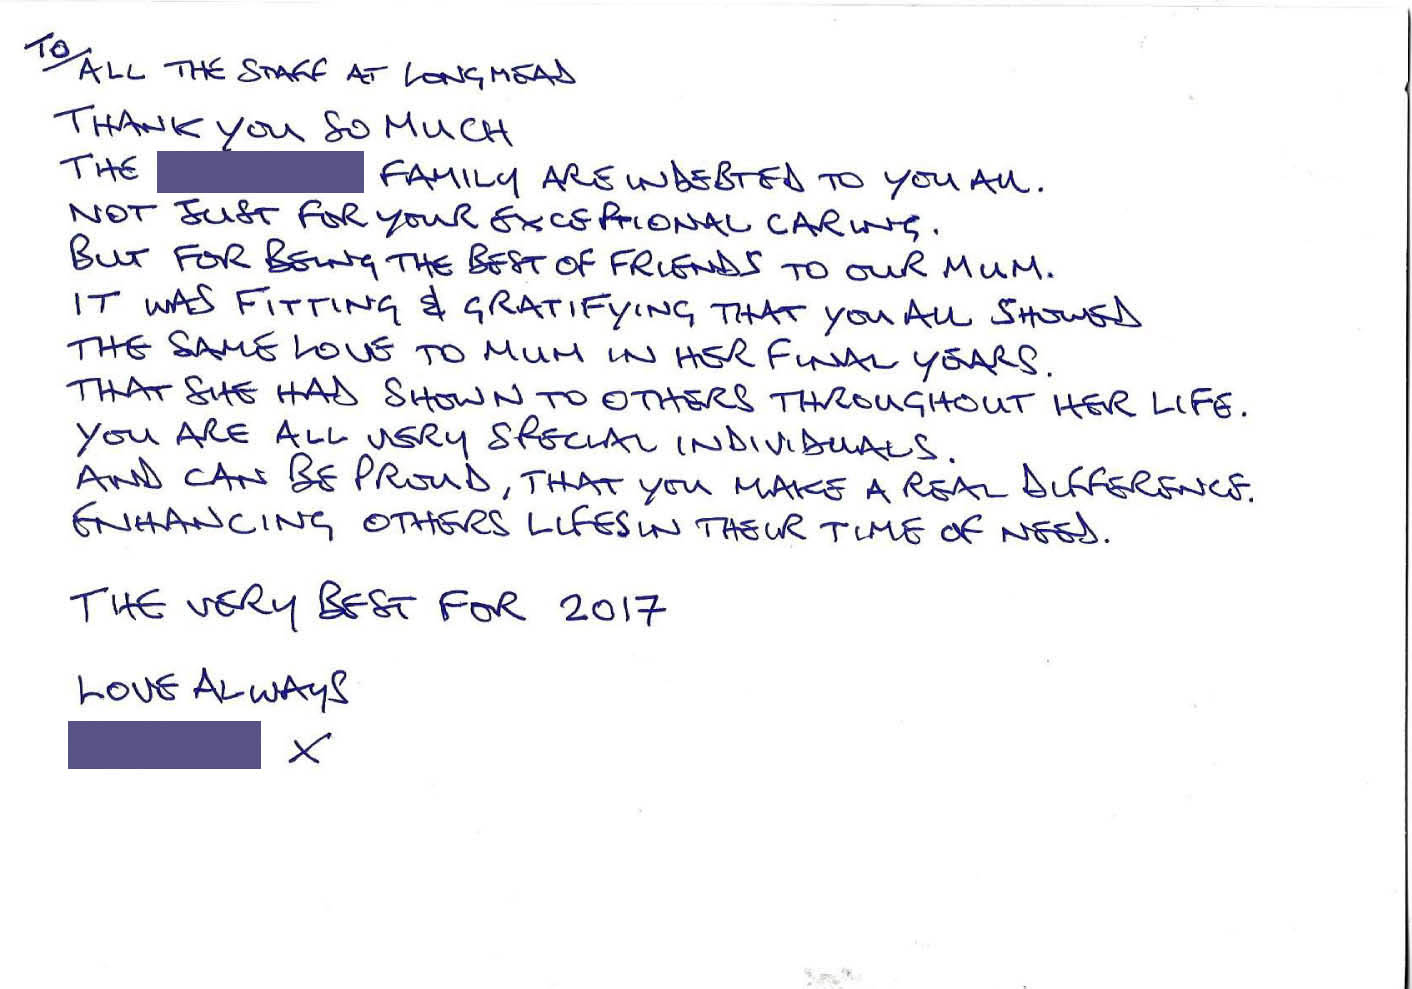 TO
ALL THE STAFF AT LONGMEAD
THANK YOU SO MUCH
THE FAMILY ARE INDEBTED TO YOU ALL.
NOT JUST FOR YOUR EXCEPTIONAL CARING.
BUT FOR BEING THE BEST OF FRIENDS TO OUR MUM.
IT WAS FITTING & GRATIFYING THAT YOU ALL SHOWED
THE SAME LOVE TO MUM IN HER FINAL YEARS.
THAT SHE HAD SHOWN TO OTHERS THROUGHOUT HER LIFE.
YOU ARE ALL VERY SPECIAL INDIVIDUALS.
AND CAN BE PROUD, THAT YOU MAKE A REAL DIFFERENCE.
ENHANCING OTHERS LIFES IN THEIR TIME OF NEED.
THE VERY BEST FOR 2017
LOVE ALWAYS
X